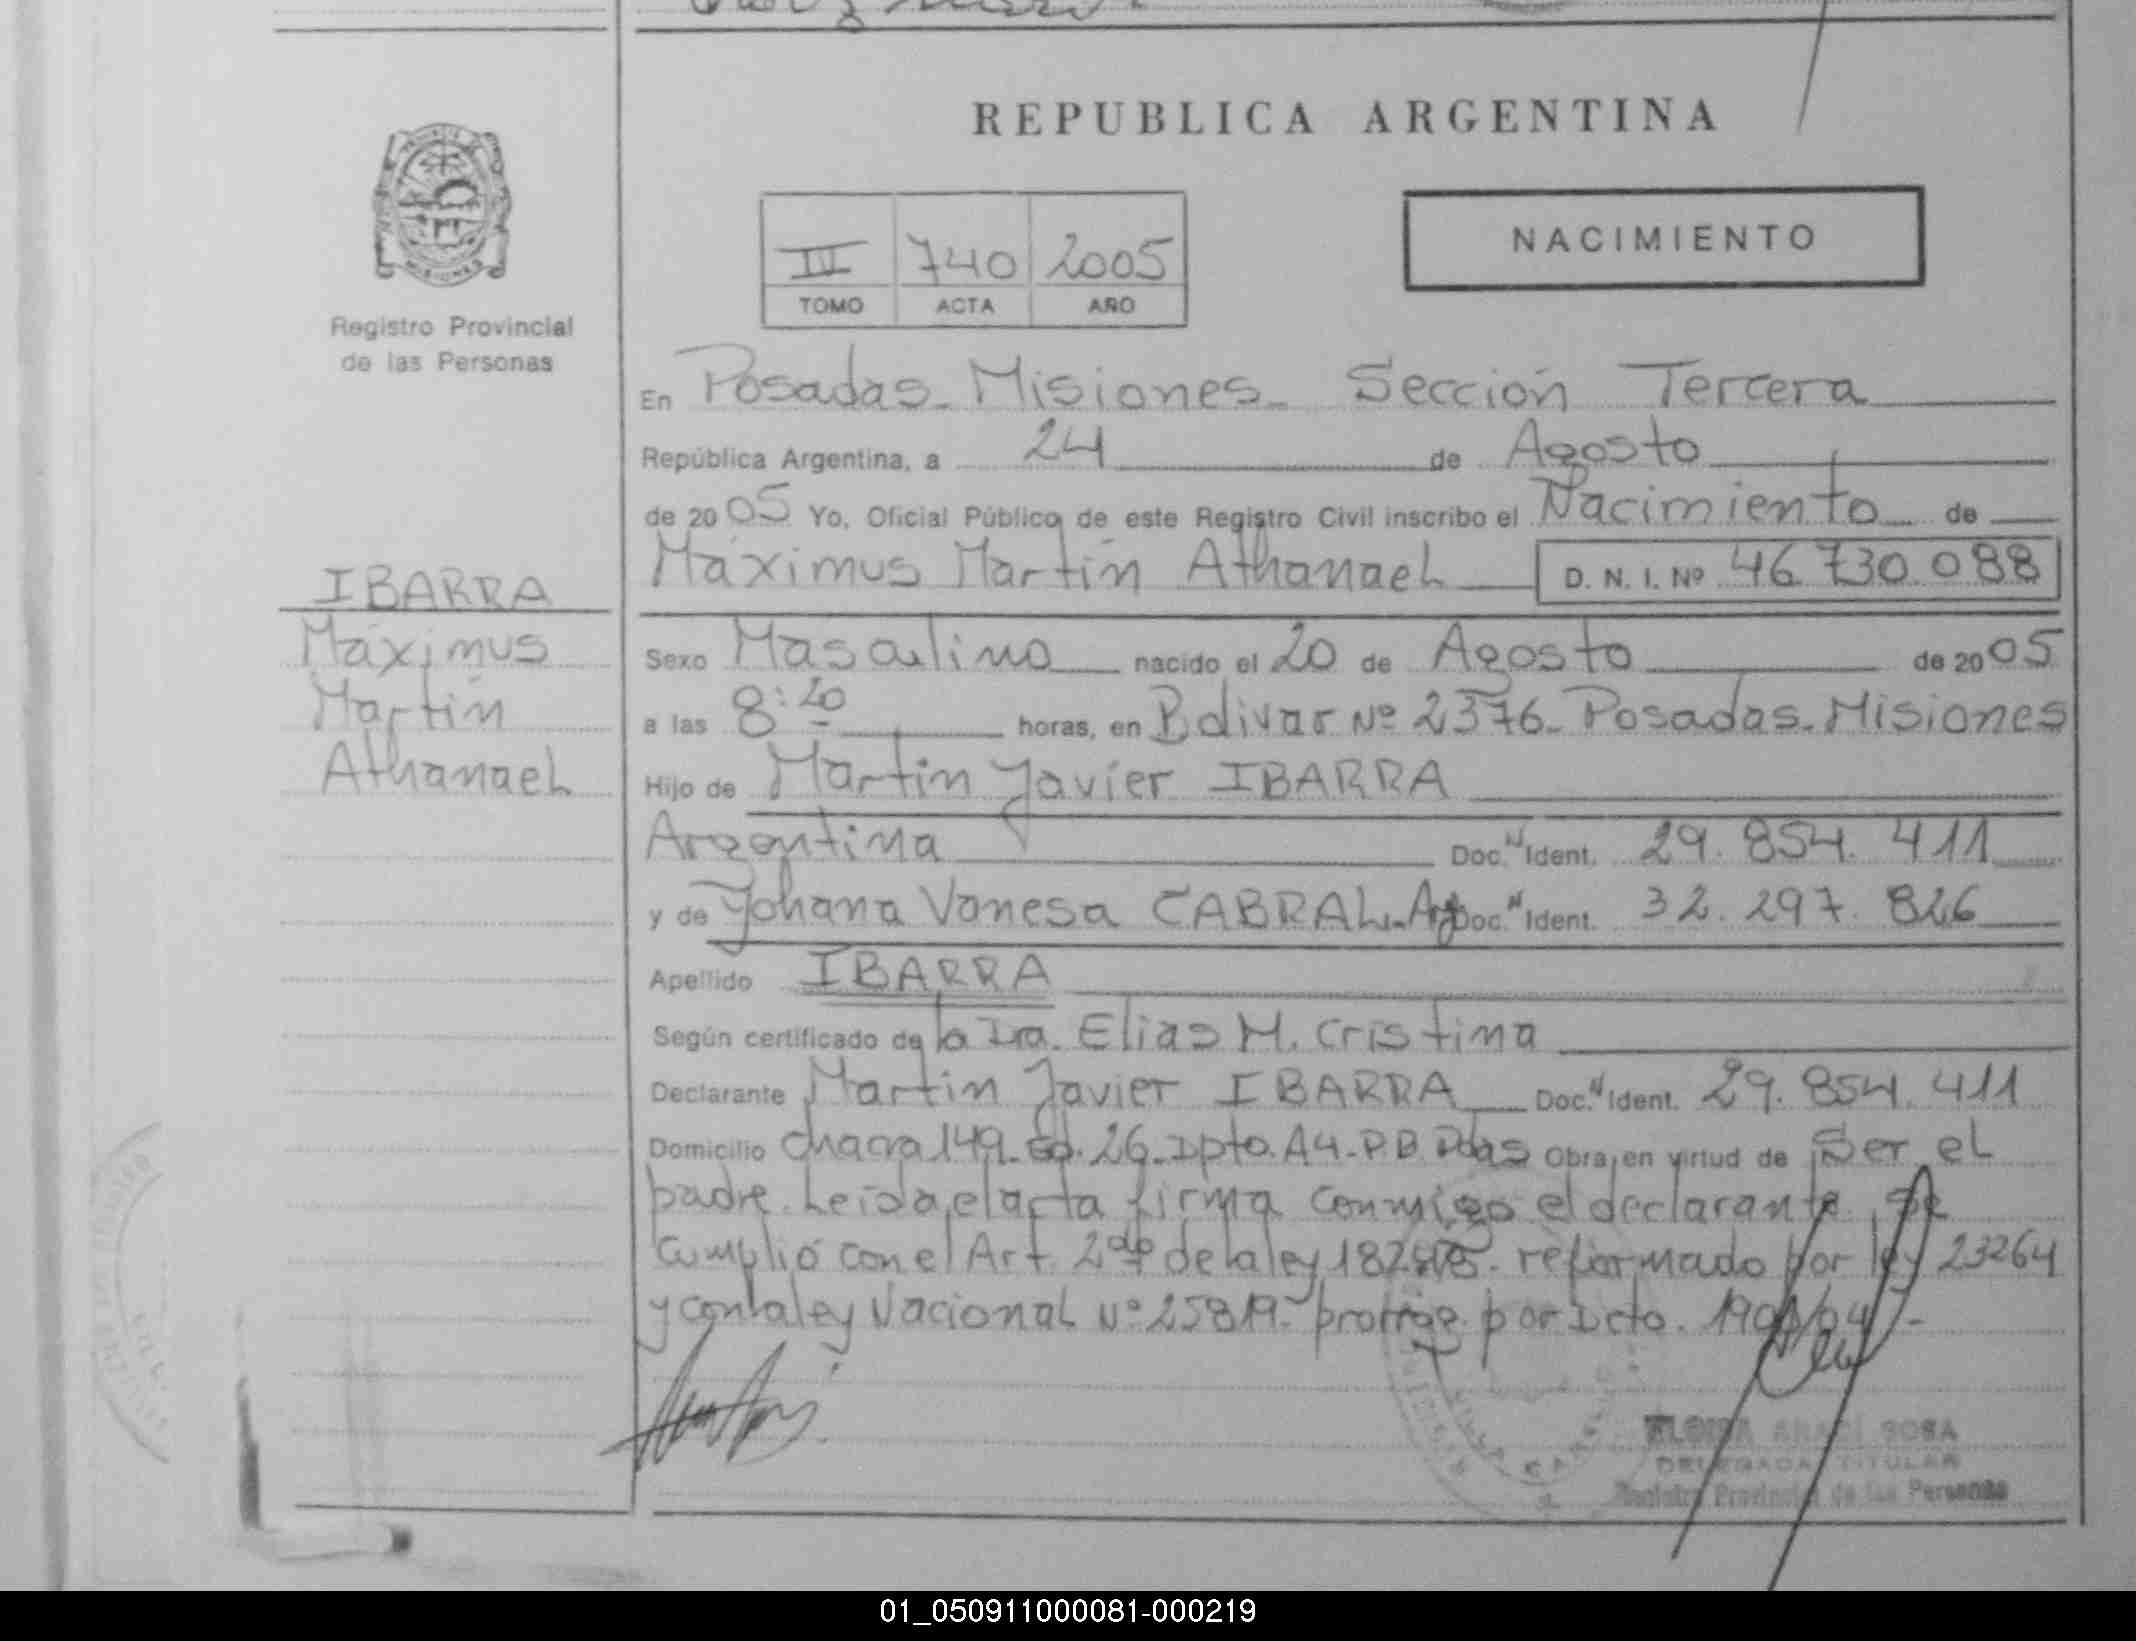 REPUBLICA ARGENTINA
NACIMIENTO
740 2005
TOMO ACTA AÑO
MISIONES
Registro Provincial
de las Personas
IBARRA
Máximus
Martín
Athanael
En Posadas - Misiones - Sección Tercera
República Argentina, a 24 de Agosto
de 2005 Yo, Oficial Público de este Registro Civil inscribo el Nacimiento de
Máximus Martín Athanael D. N. I. Nº 46.730.088
Sexo Masculino nacido el 20 de Agosto de 2005
a las 8:20 horas, en Bolivar Nº 2376 - Posadas - Misiones
Hijo de Martín Javier IBARRA
Argentina Doc. N Ident. 29.854.411
y de Yohana Vanesa CABRAL - Arg Doc. N Ident. 32.297.826
Apellido IBARRA
Según certificado de la Dra. Elias M. Cristina
Declarante Martin Javier IBARRA Doc. N Ident. 29.854.411
Domicilio Chacra 149 - Ed. 26 - Dpto. A4 - P.B. Pdas Obra, en virtud de Ser el
padre. Leída el acta firma conmigo el declarante. Se
cumplió con el Art. 2do de la ley reformado por ley 23264
y con la ley Nacional Nº 25819 - por Dcto.
ARACÍ ROSA
DELEGADA TITULAR
Registro Provincial de las Personas
01_050911000081-000219